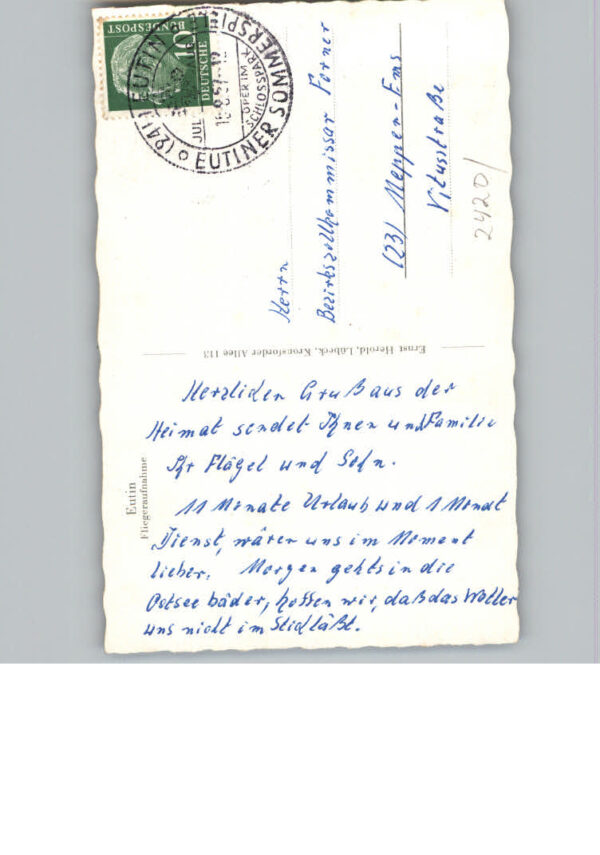 DEUTSCHE
BUNDESPOST
10
(24) EUTIN
EUTINER SOMMERSPI
OPER IM
SCHLOSSPARK
JUL
Herrn
Bezirkszollkommissar Forner
(23) Meppen-Ems
Vitusstraße
2420/
Ernst Herold, Lübeck, Kronsforder Allee 113
Eutin
Fliegeraufnahme
Herzlichen Gruß aus der
Heimat sendet Ihnen und Familie
Ihr Flägel und Sohn.
11 Monate Urlaub und 1 Monat
Dienst, wären uns im Moment
lieber. Morgen gehts in die
Ostseebäder, hoffen wir, daß das Wetter
uns nicht im Stich läßt.